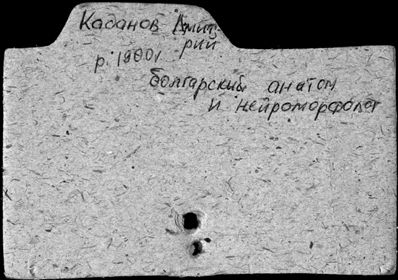 Каданов Дмит-
рий
р. 1900г
болгарский анатом
и нейроморфолог